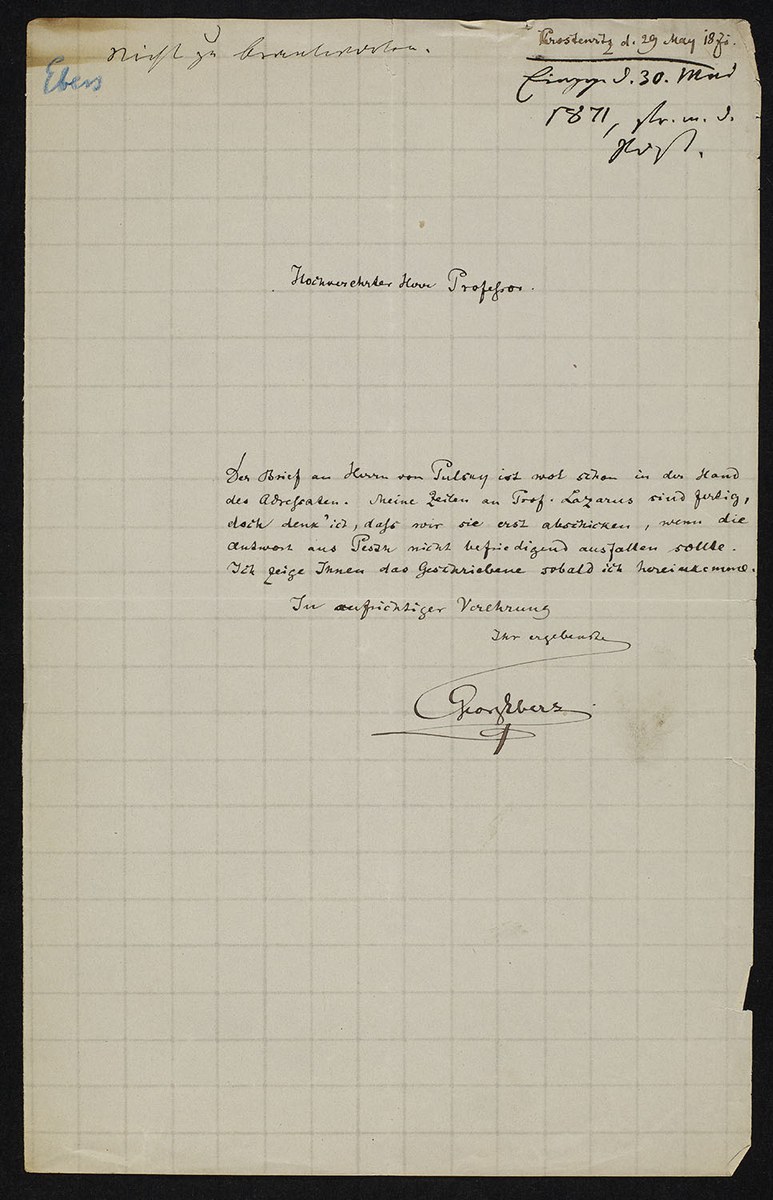 Nicht zu beantworten.
Ebers
Prostewitz d. 29 May 1871.
d. 30. Mai
1871,
Hochverehrter Herr Professor.
Der Brief an Herrn von Pulsky ist wol schon in der Hand
des Adreſsaten. Meine Zeilen an Prof. Lazarus sind fertig,
doch denk' ich, daſs wir sie erst abschicken, wenn die
Antwort aus Pesth nicht befriedigend ausfallen sollte.
Ich zeige Ihnen das Geschriebene sobald ich hereinkomme.
In aufrichtiger Verehrung
Ihr ergebenster
Georg Ebers